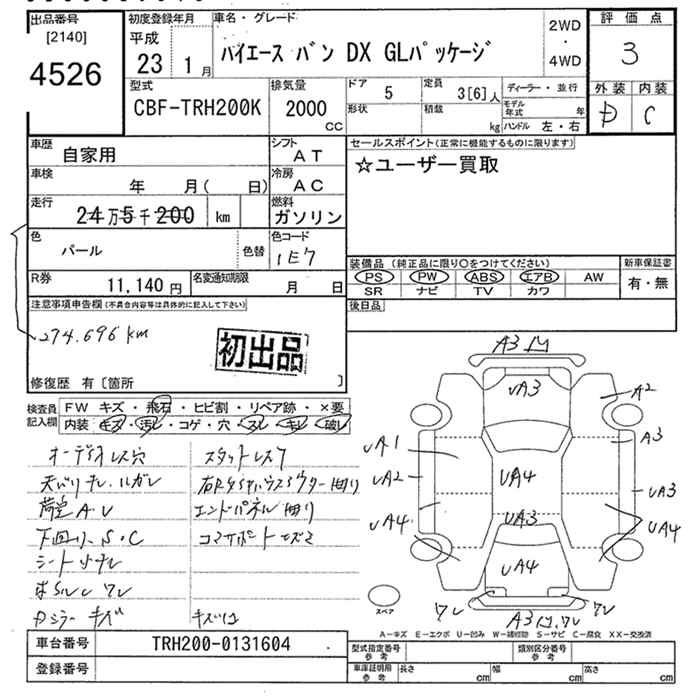 出品番号
[2140]
4526
初度登録年月
平成
23 1月
車名・グレード
ハイエース バン DX GLパッケージ
2WD
・
4WD
評価点
3
外装 内装
D C
型式
CBF-TRH200K
排気量
2000
CC
ドア
5
定員
3[6]人
ディーラー・並行
形状
積載
kg
モデル年式
年
ハンドル 左・右
車歴
自家用
シフト
AT
車検
年 月( 日)
冷房
AC
走行
24万5千200 km
燃料
ガソリン
色
パール
色替
色コード
1E7
R券
11,140円
名変通知期限
月 日
セールスポイント(正常に機能するものに限ります)
☆ユーザー買取
装備品(純正品に限り○をつけてください)
PS PW ABS エアB AW
SR ナビ TV カワ
新車保証書
有・無
後日品
注意事項申告欄(不具合内容等は具体的に記入して下さい)
274.696km
初出品
修復歴 有〔箇所 〕
検査員記入欄
FW キズ・飛石・ヒビ割・リペア跡・×要
内装 キズ・汚レ・コゲ・穴・スレ・キレ・破レ
オーディオレス穴
天バリキレ、ハガレ
荷室A・U
下回り、S・C
シートキレ
キズ
スタットレス7
エンドパネル曲り
キズU
A3
UA3
A2
UA1
A3
UA2
UA4
UA3
UA4
UA3
UA4
UA4
ワレ
ワレ
スペア
A3 ワレ
A-キズ E-エクボ U-凹み W-補修跡 S-サビ C-腐食 XX-交換済
車台番号
TRH200-0131604
登録番号
型式指定番号
参考
類別区分番号
参考
車庫証明用
参考
長さ cm
幅 cm
高さ cm